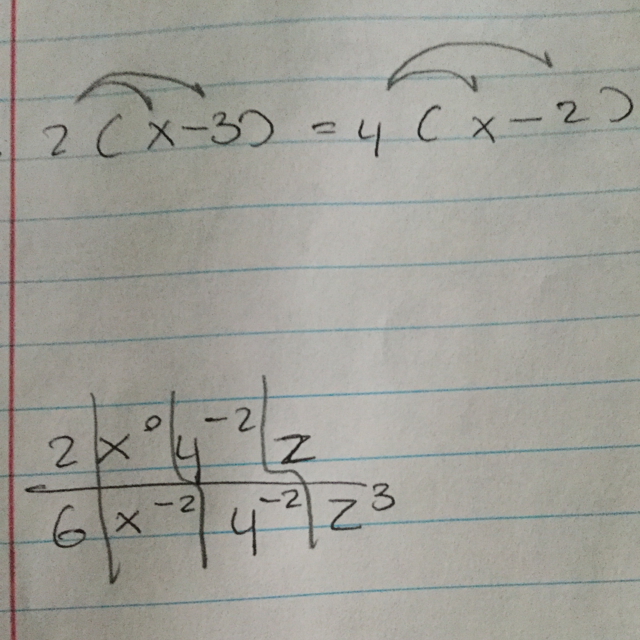 2(x-3) = 4(x-2)
2|x⁰|y⁻²|z
6|x⁻²|y⁻²|z³